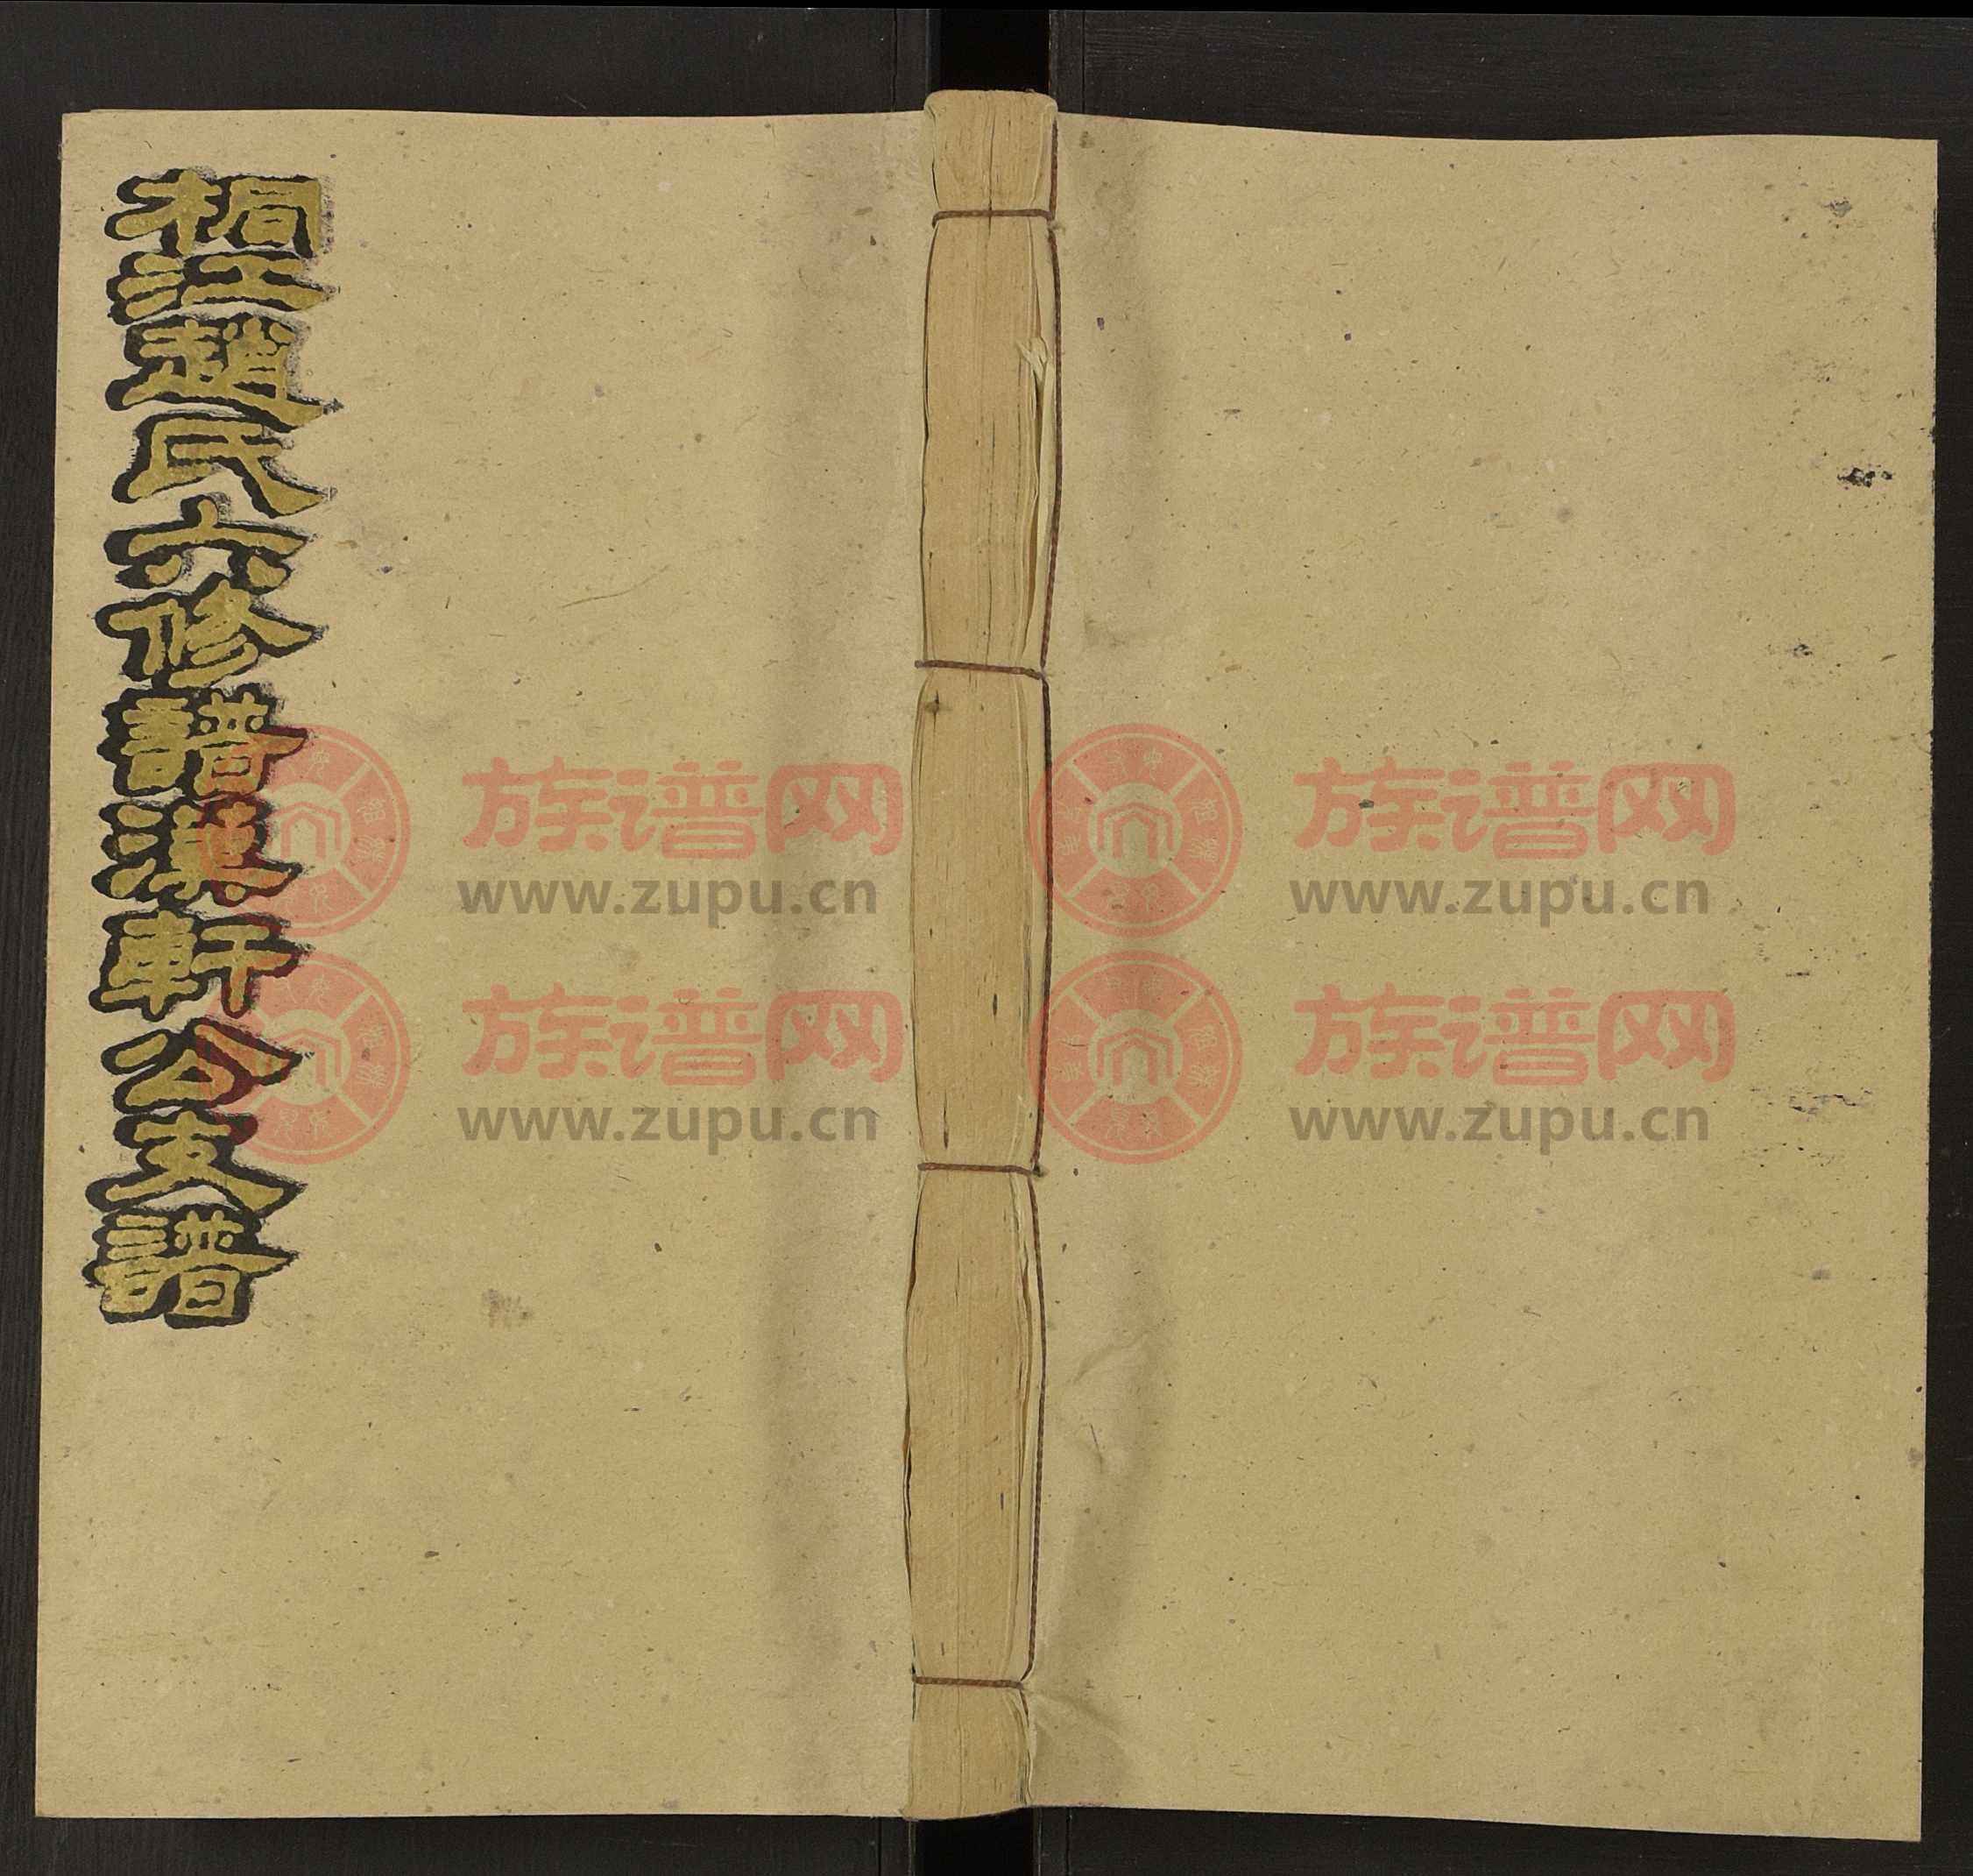 桐江趙氏六修譜漢軒公支譜
族谱网
www.zupu.cn
族谱网
www.zupu.cn
族谱网
www.zupu.cn
族谱网
www.zupu.cn